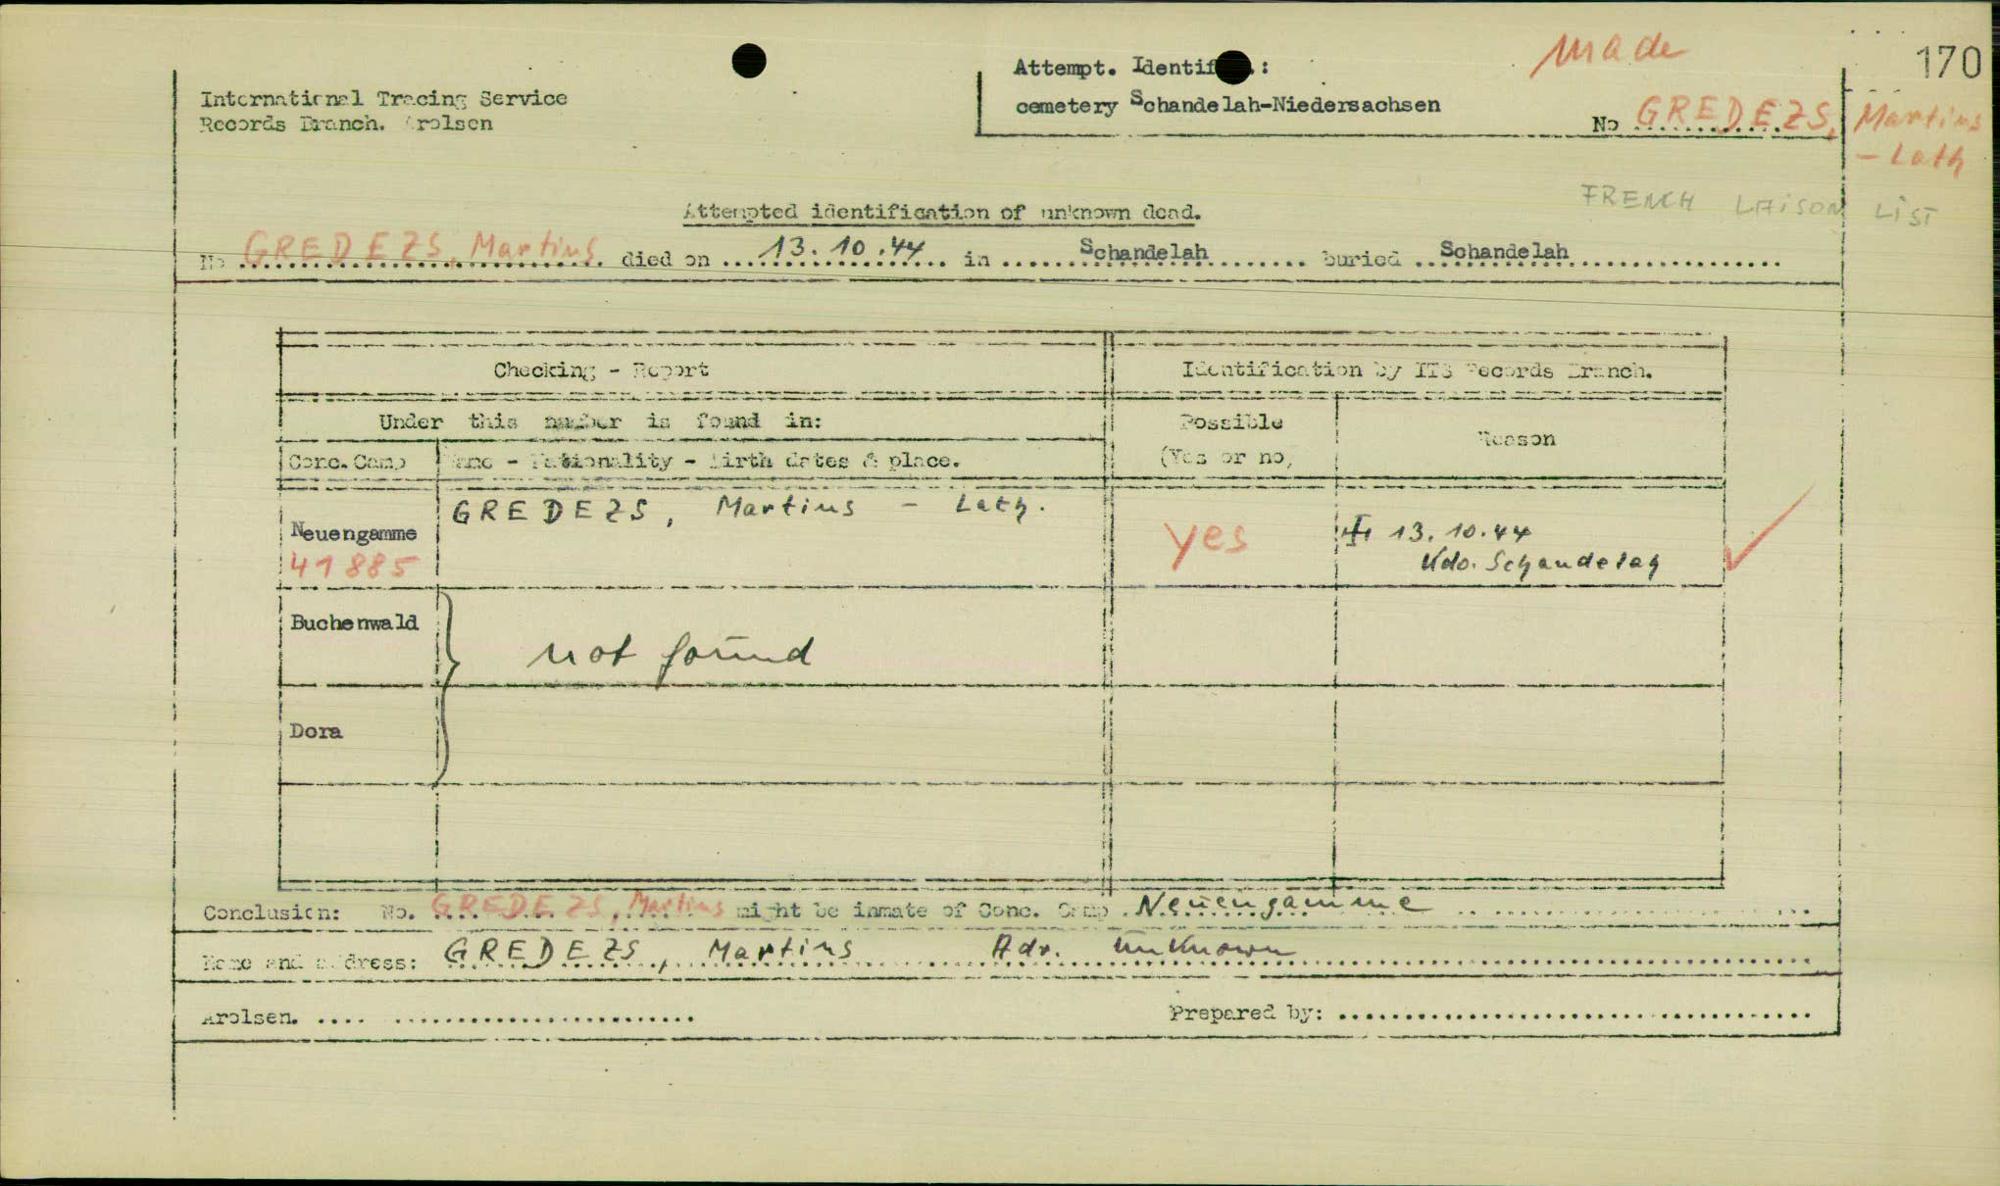 170
made
Attempt. Identif :
cemetery Schandelah-Niedersachsen
No GREDEZS, Martins
- Lath
International Tracing Service
Records Branch. Arolsen
FRENCH LAISON LIST
Attempted identification of unknown dead.
No GREDEZS, Martins died on 13.10.44 in Schandelah buried Schandelah
Checking - Report Identification by ITS Records Branch.
Under this number is found in: Possible (Yes or no) Reason
Conc. Camp Name - Nationality - Birth dates & place.
Neuengamme GREDEZS, Martins - Lath. yes 13.10.44
41885 Kdo. Schandelah
Buchenwald
not found
Dora
Conclusion: No. GREDEZS, Martins might be inmate of Conc. Camp Neuengamme
Name and address: GREDEZS, Martins Adr. unknown
Arolsen. Prepared by: